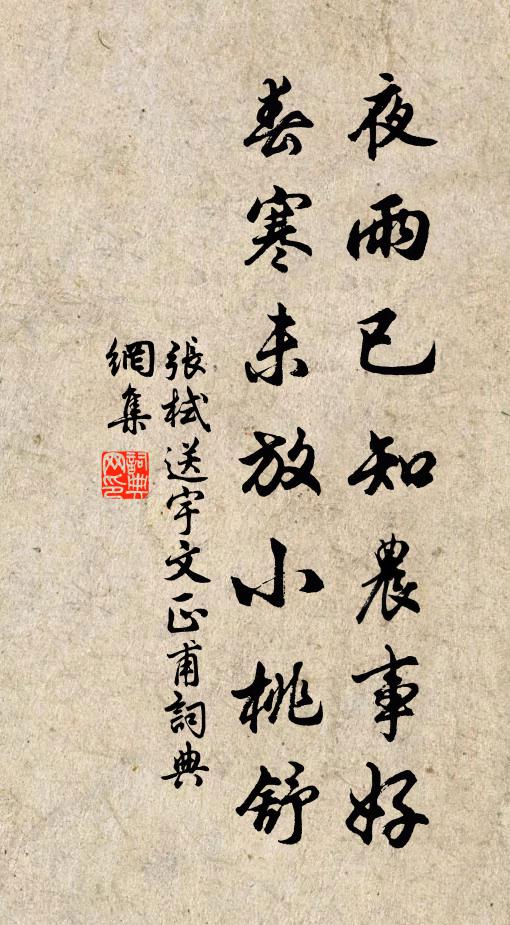 夜雨已知農事好
春寒未放小桃舒
張栻送宇文正甫詞典
網集
詞典
网印